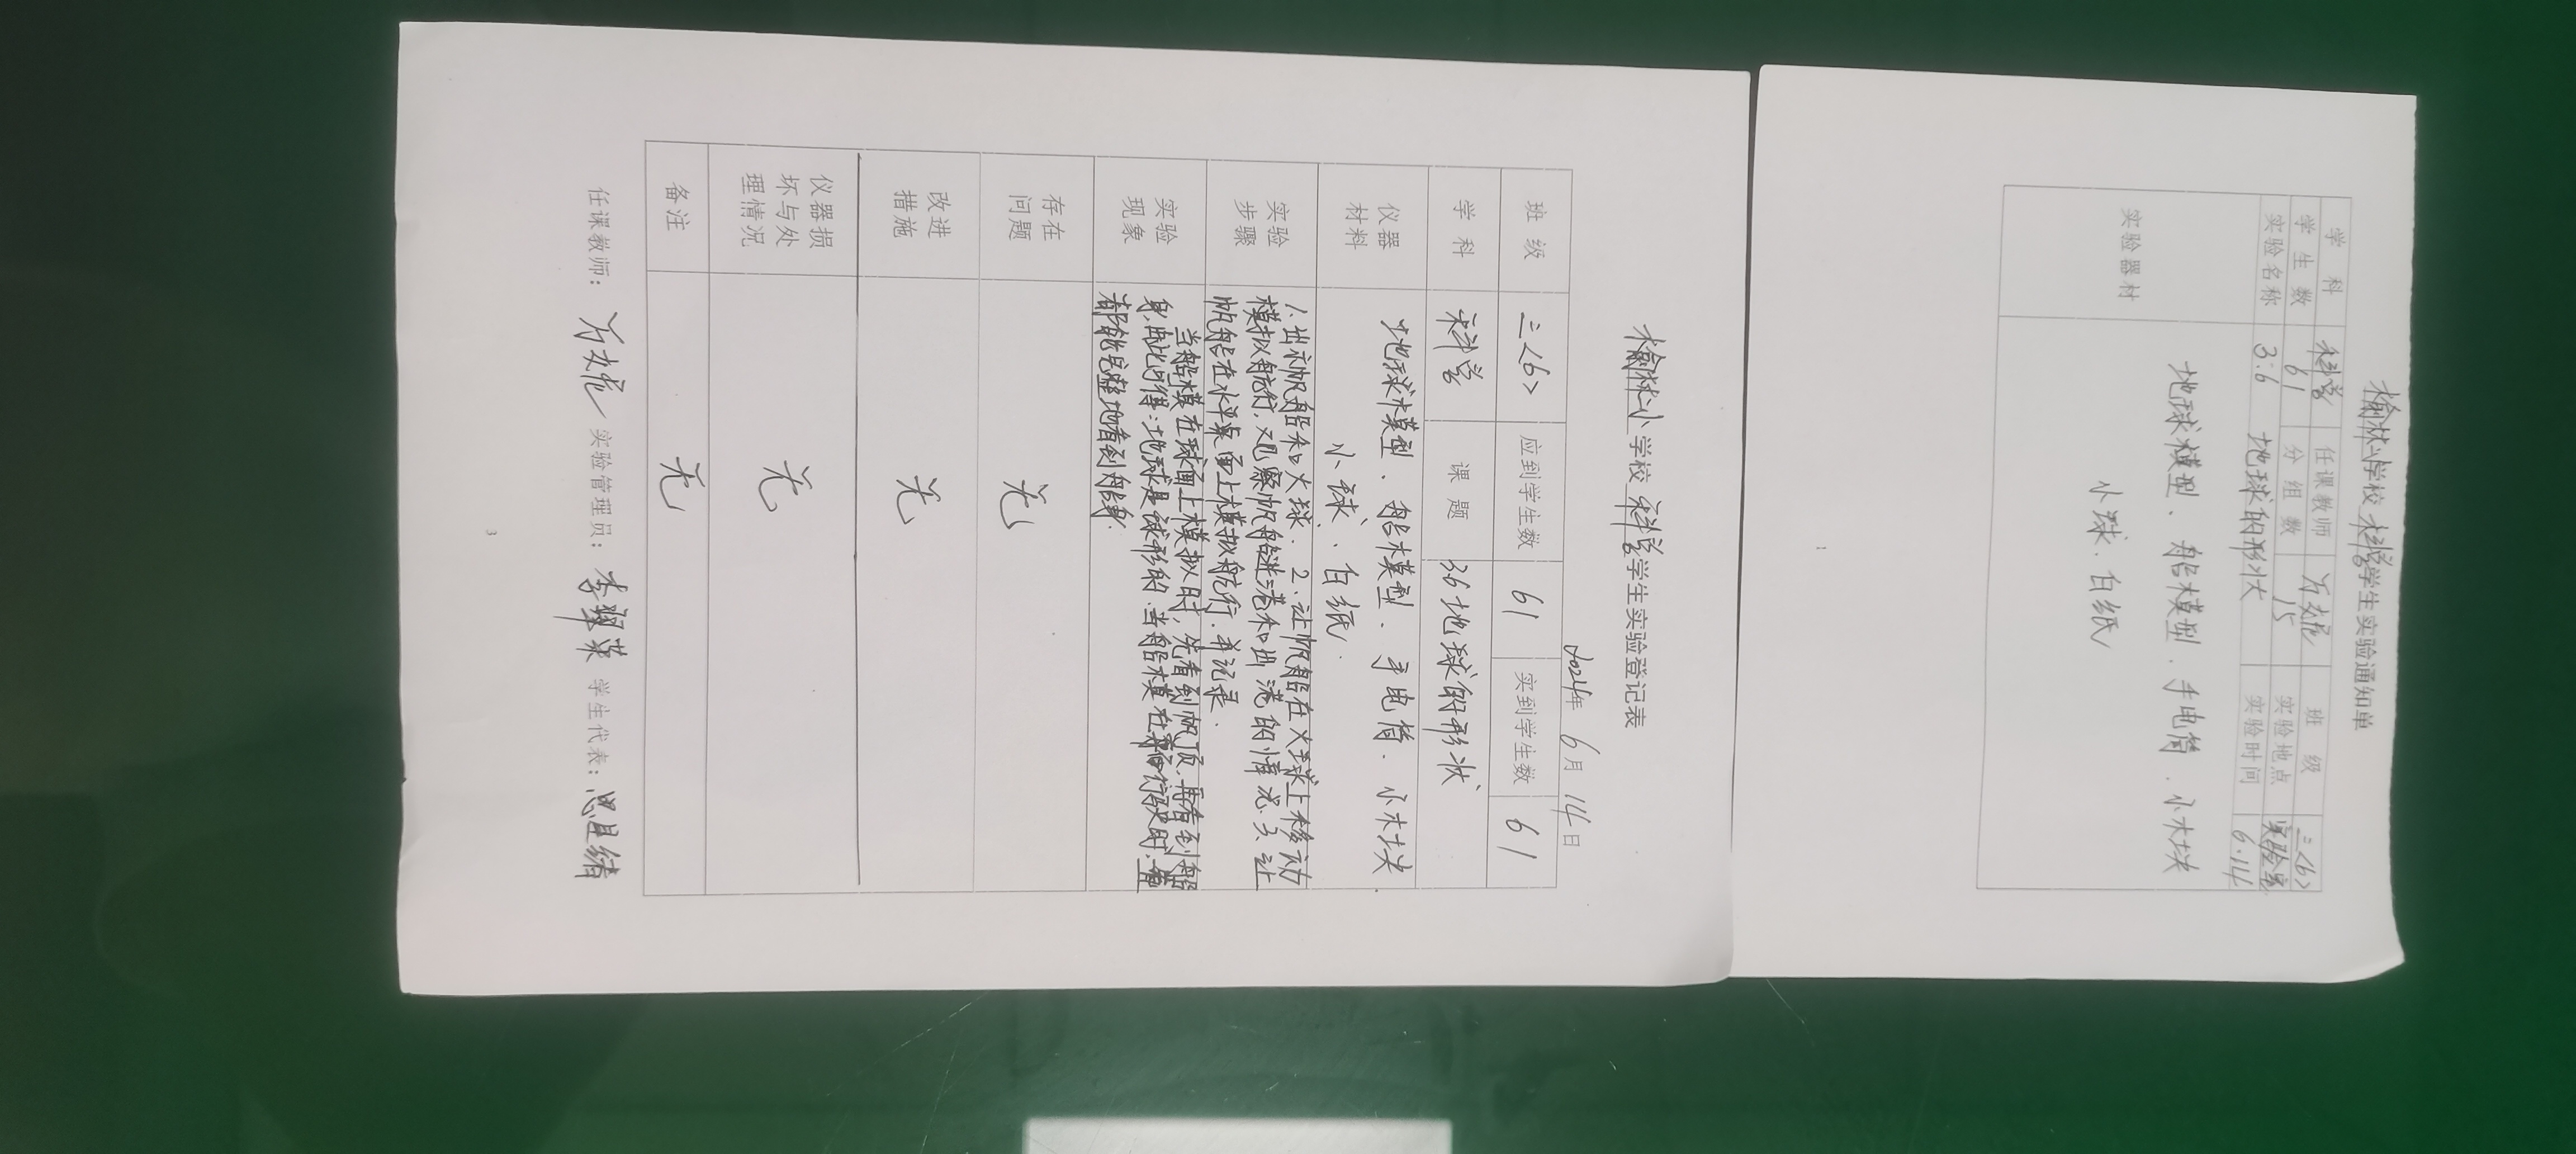 榆林小学校科学学生实验通知单
学科 科学 任课教师 班级 三<6>
学生数 61 分组数 15 实验地点 实验室
实验名称 3.6 地球的形状 实验时间 6.14
实验器材 地球模型、船模型、手电筒、小木块
小球、白纸
1
榆林小学校科学学生实验登记表
2024年6月14日
班级 三<6> 应到学生数 61 实到学生数 61
学科 科学 课题 3.6地球的形状
仪器材料 地球模型、船模型、手电筒、小木块
小球、白纸.
实验步骤 1.出示帆船和大球. 2.让帆船在大球上移动
模拟航行,观察帆船进港和出港的情况.3.让
帆船在水平桌面上模拟航行.并记录.
实验现象 当船模在球面上模拟时,先看到帆顶,再看到船
身,由此可得:地球是球形的.当船模在
都能完整地看到船身.
存在问题 无
改进措施 无
仪器损坏与处理情况 无
备注 无
任课教师: 实验管理员: 李 学生代表: 思绪
3